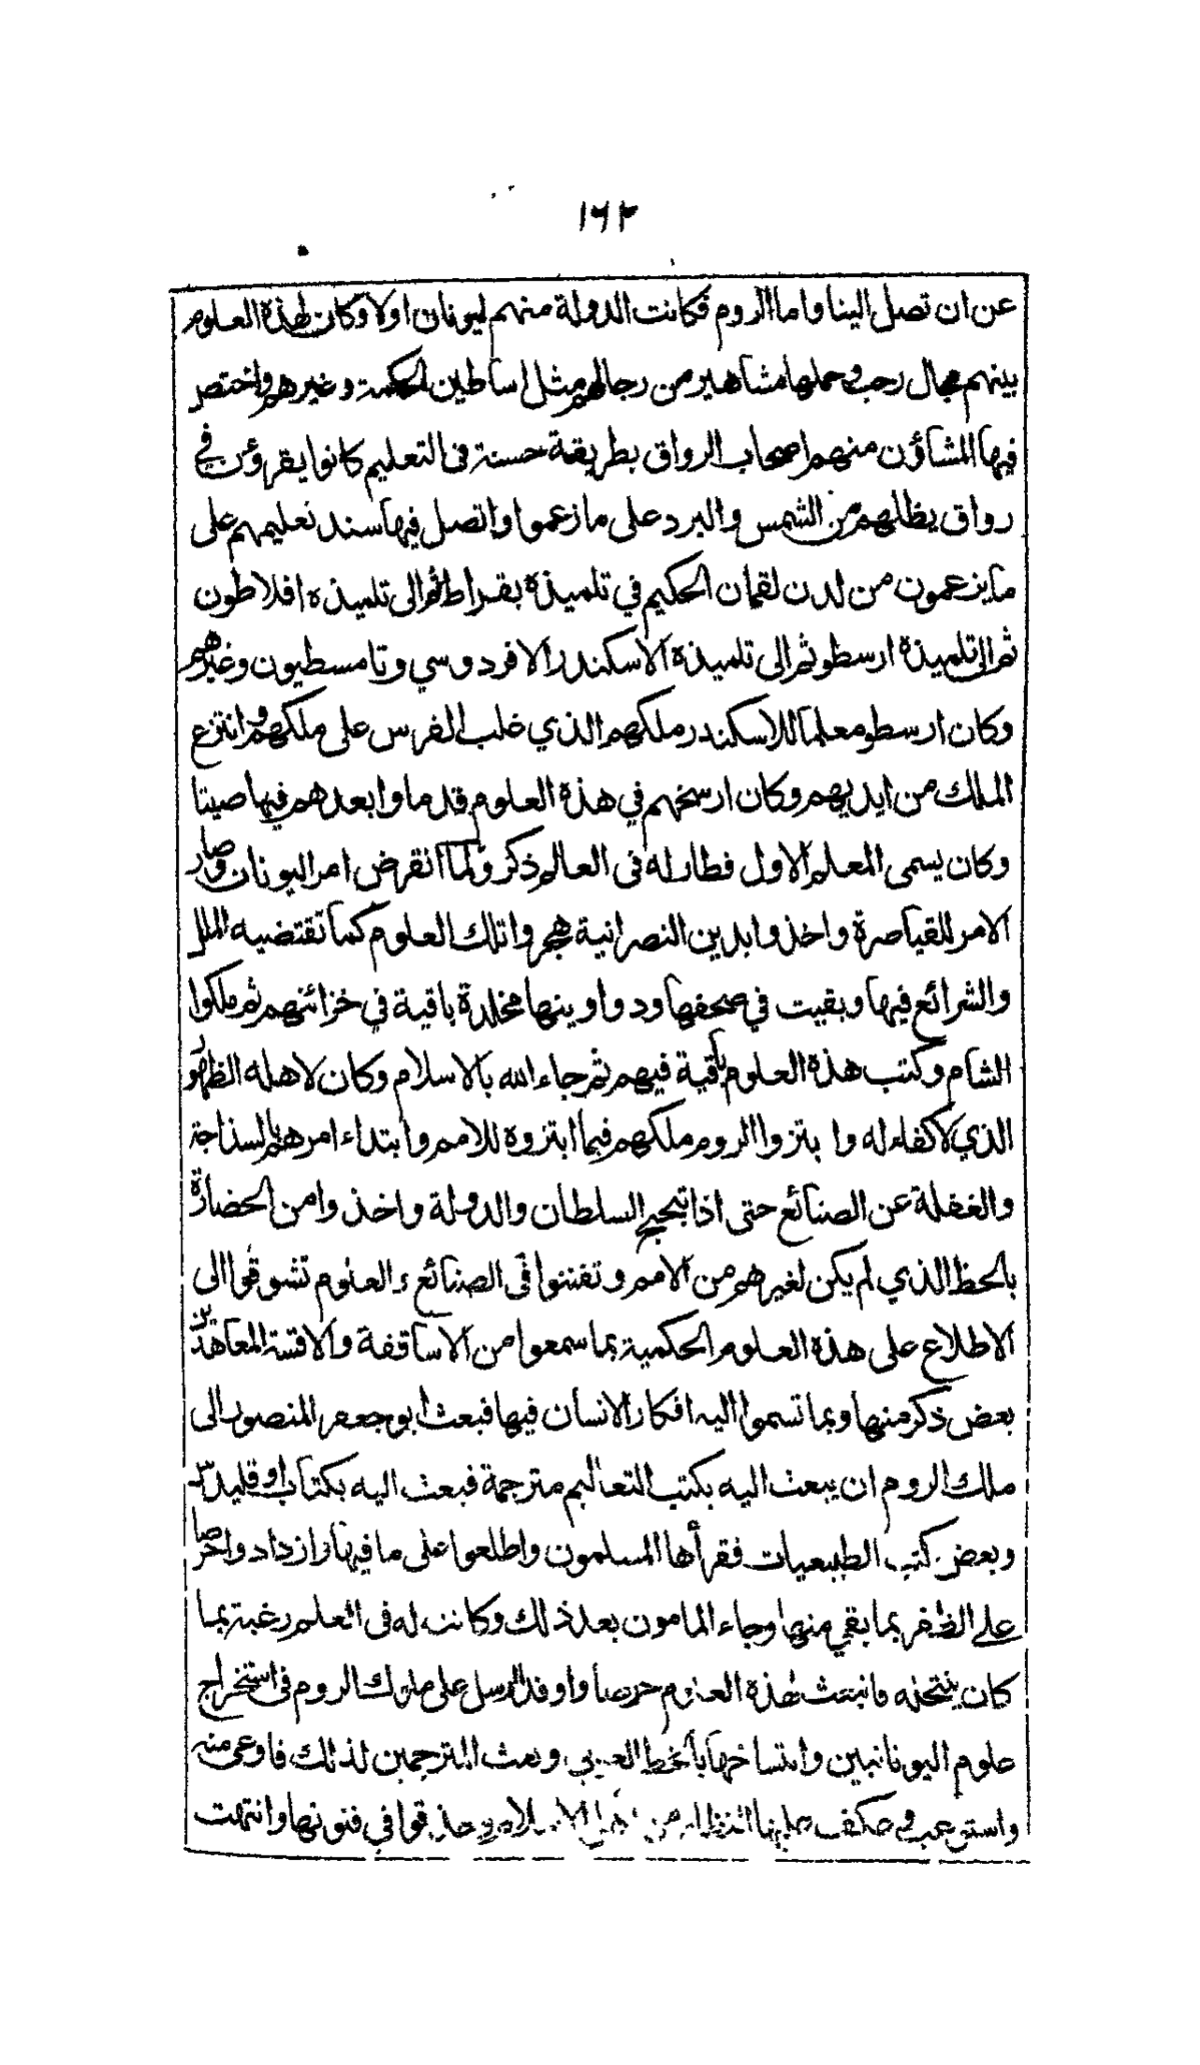 ١٦٢
عن ان تصل الينا واما الروم فكانت الدولة منهم ليونان اولا وكان لهذه العلوم
بينهم مجال رحب وحملها مشاهير من رجالهم مثل اساطين الحكمة وغيرهم واختص
فيها المشاؤن منهم اصحاب الرواق بطريقة حسنة فى التعليم كانوا يقرؤن في
رواق يظلهم من الشمس والبرد على ما زعموا واتصل فيها سند تعليمهم على
ما يزعمون من لدن لقمان الحكيم في تلميذة بقراط ثم الى تلميذه افلاطون
ثم الى تلميذة ارسطو ثم الى تلميذة الاسكندر الافردوسي وتامسطيون وغيرهم
وكان ارسطو معلما للاسكندر ملكهم الذي غلب الفرس على ملكهم وانتزع
الملك من ايديهم وكان ارسخهم في هذة العلوم قدما وابعدهم فيها صيتا
وكان يسمى المعلم الاول فطار له فى العالم ذكر ولما انقرض امر اليونان وصار
الامر للقياصرة واخذوا بدين النصرانية هجروا تلك العلوم كما تقتضيه الملل
والشرائع فيها وبقيت في صحفها ودواوينها مخلدة باقية في خزائنهم ثم ملكوا
الشام وكتب هذة العلوم باقية فيهم ثم جاء الله بالاسلام وكان لاهله الظهور
الذي لا كفاء له وا بتزوا الروم ملكهم فيما ابتزوة للامم وابتداء امرهم بالسذاجة
والغفلة عن الصنائع حتى اذا تبحبح السلطان والدولة واخذ وامن الحضارة
بالحظ الذي لم يكن لغيرهم من الامم وتفننوا فى الصنائع والعلوم تشوقوا الى
الاطلاع على هذة العلوم الحكمية بما سمعوا من الاساقفة والاقسة المعاهدين
بعض ذكر منها وبما تسموا اليه افكار الانسان فيها فبعث ابو جعفر المنصور الى
ملك الروم ان يبعث اليه بكتب التعاليم مترجمة فبعث اليه بكتاب اوقليدس
وبعض كتب الطبيعيات فقرأها المسلمون واطلعوا على ما فيها وازدادوا حرصا
على الظفر بما بقي منها وجاء المامون بعد ذلك وكانت له فى العلم رغبة بما
كان ينتحله فانبعث لهذة العلوم حرصا واوفد الرسل على ملوك الروم فى استخراج
علوم اليونانيين وانتساخها بالخط العربي وبعث المترجمين لذلك فاوعى منه
واستوعب وعكف عليها النظار من اهل الاسلام وحذقوا في فنونها وانتهت